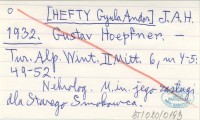 [HEFTY Gyula Andor] J.A.H.
1932. Gustav Hoepfner. —
Tur. Alp. Wint. II Mitt. 6, nr 4-5:
49-52.
Nekrolog. M.in. jego zasługi
dla Starego Smokowca.